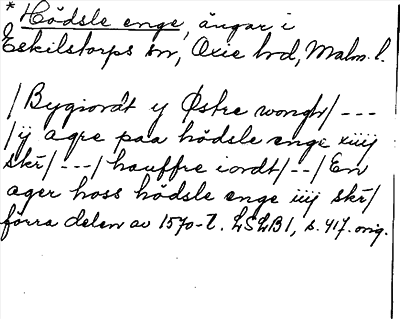 * Hödsle enge, ängar i
Eskilstorps sn, Oxie hd, Malm. l.
/Bygiordt y Østre wongh/ ---
/ij agre paa hödsle enge xiiij
skr/ ---/ hauffre iordt/ --/ En
ager hoss hödsle enge iiij skr/
förra delen av 1570-t. LSLB1, s. 417. orig.